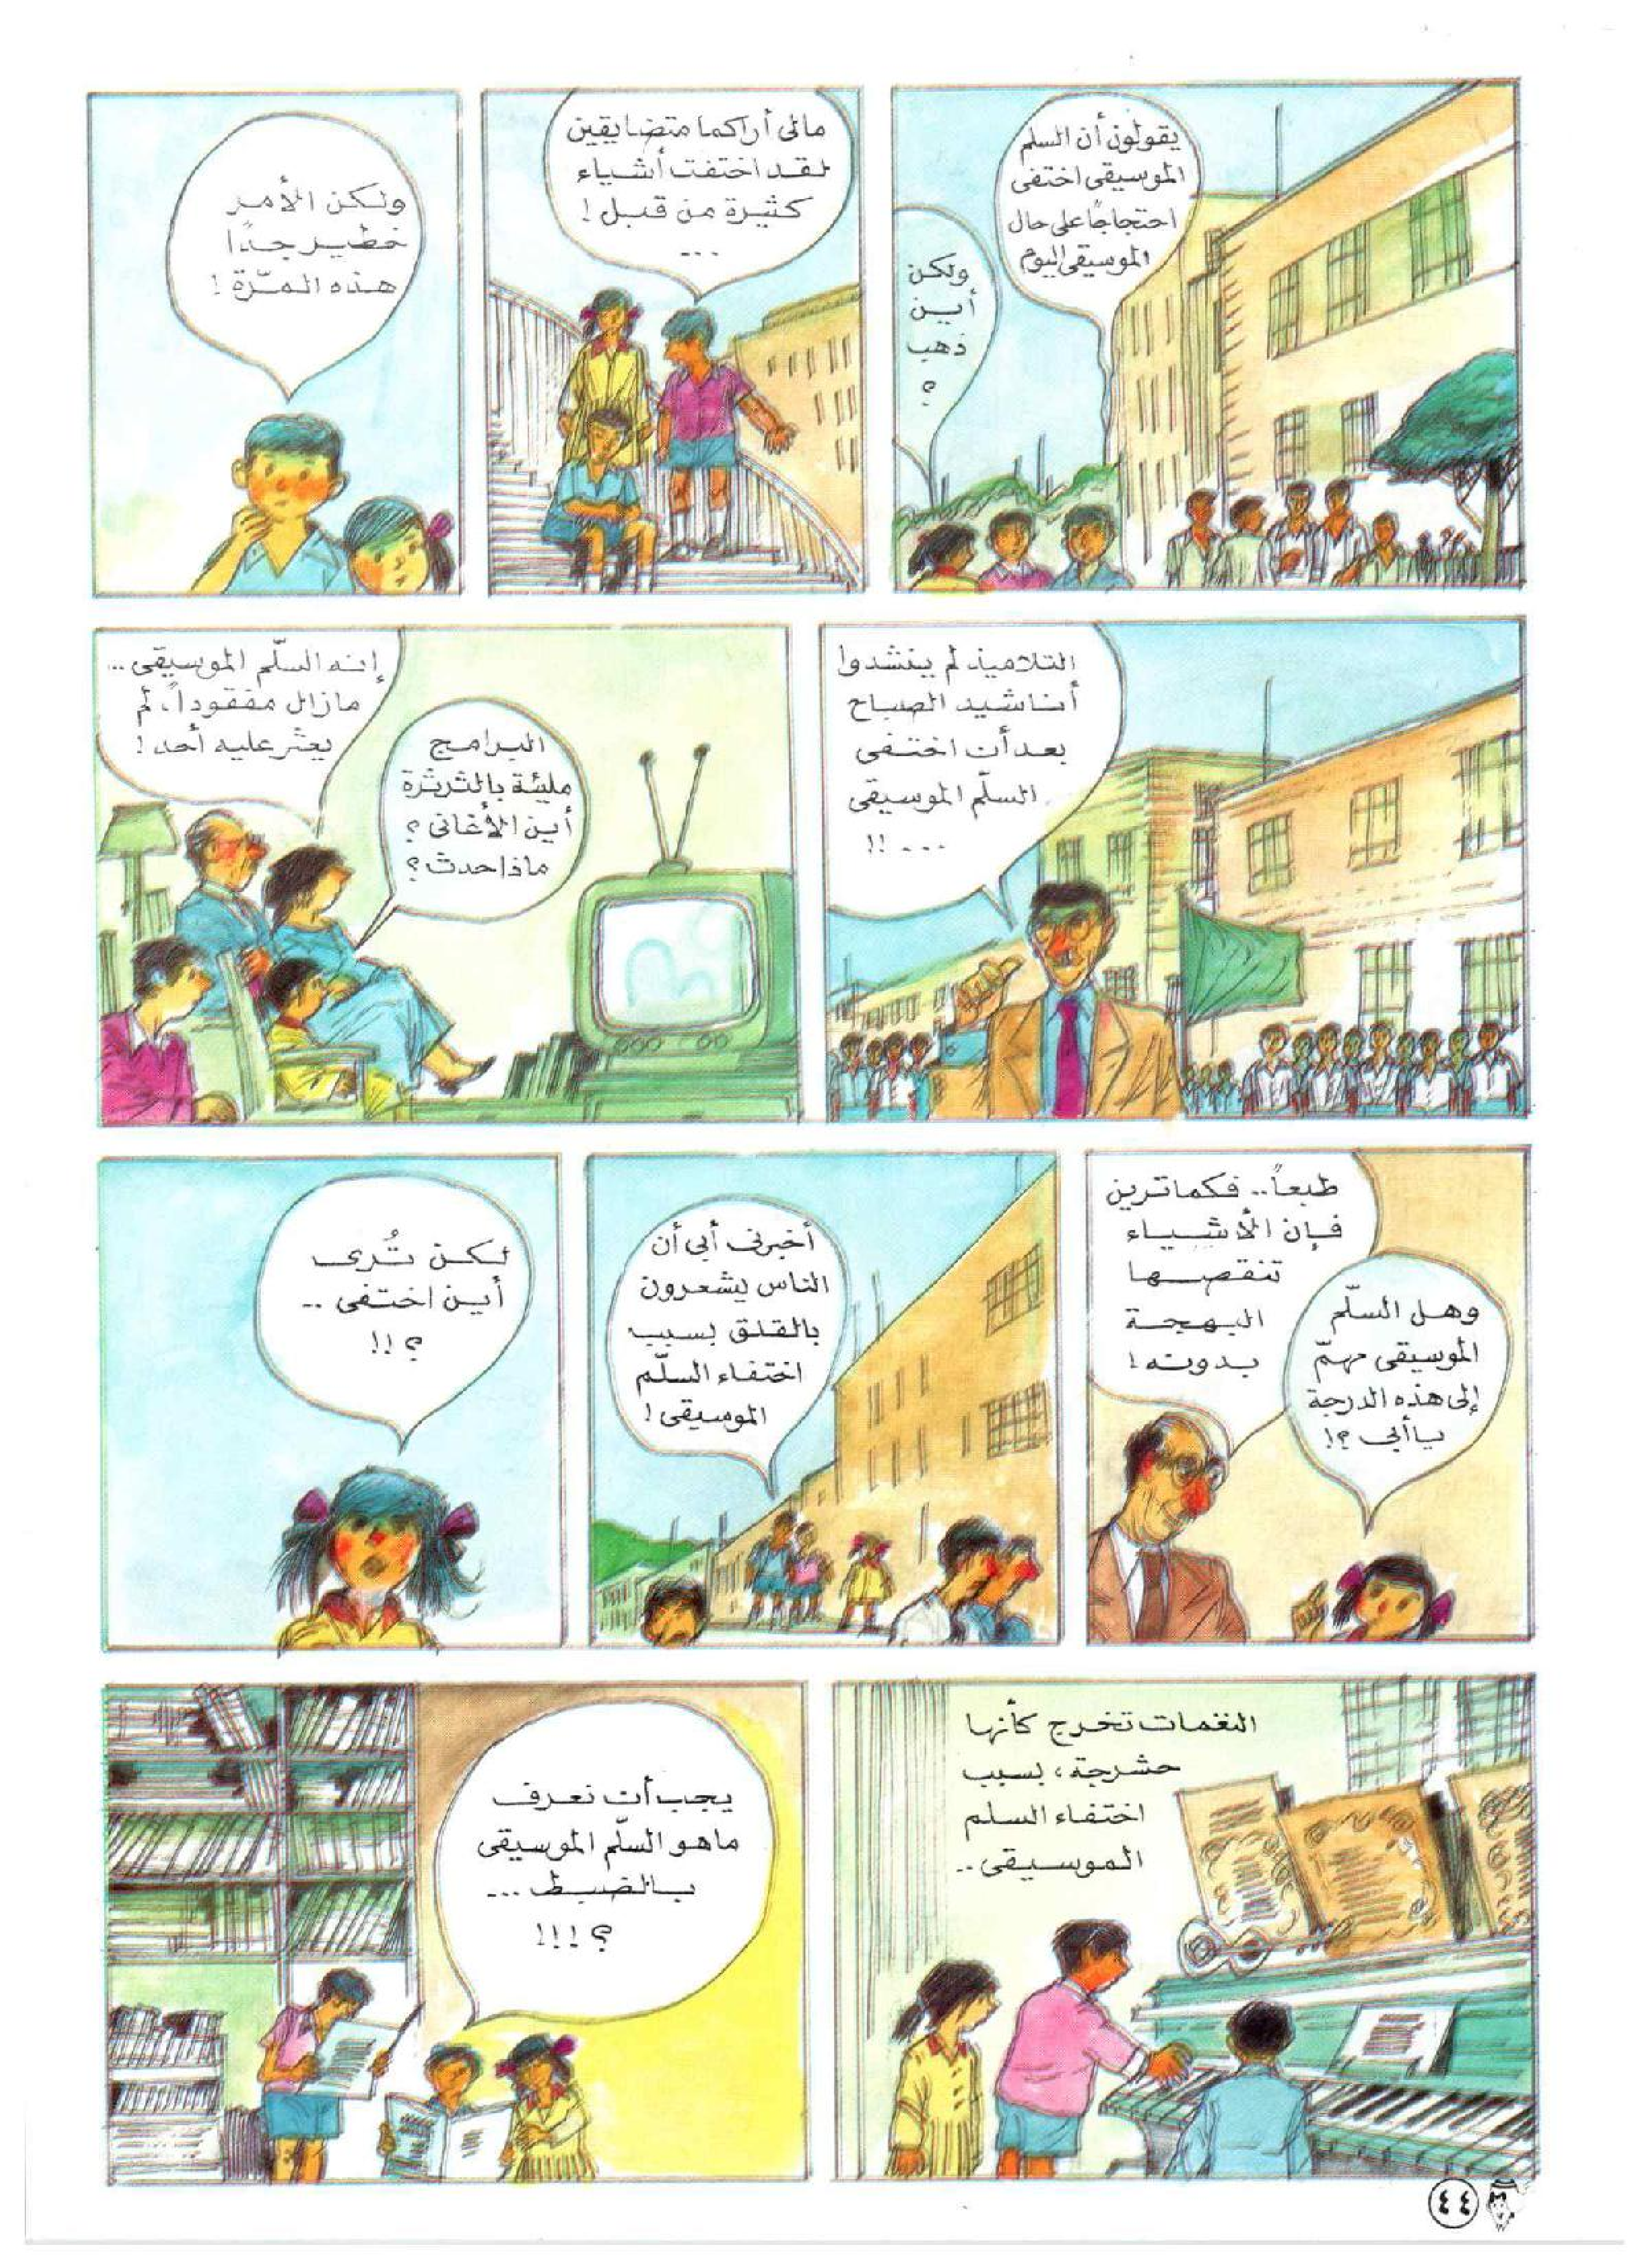 يقولون أن السلم
الموسيقى اختفى
احتجاجًا على حال
الموسيقى اليوم
ولكن
أين
ذهب
؟
مالى أراكما متضايقين
لقد اختفت أشياء
كثيرة من قبل !
...
ولكن الأمر
خطير جدًا
هذه المرّة !
التلاميذ لم ينشدوا
أناشيد الصباح
بعد أن اختفى
السلّم الموسيقى
... !!
إنه السلّم الموسيقى ..
مازال مفقوداً، لم
يعثر عليه أحد !
البرامج
مليئة بالثرثرة
أين الأغانى ؟
ماذا حدث ؟
وهل السلّم
الموسيقى مهمّ
إلى هذه الدرجة
يا أبى ؟!
طبعاً .. فكما ترين
فإن الأشياء
تنقصها
البهجة
بدونه !
أخبرنى أبى أن
الناس يشعرون
بالقلق بسبب
اختفاء السلّم
الموسيقى !
لكن تُرى
أين اختفى ..
؟ !!
النغمات تخرج كأنها
حشرجة ، بسبب
اختفاء السلم
الموسيقى ..
يجب أن نعرف
ماهو السلّم الموسيقى
بالضبط ...
؟ !!!
٤٤